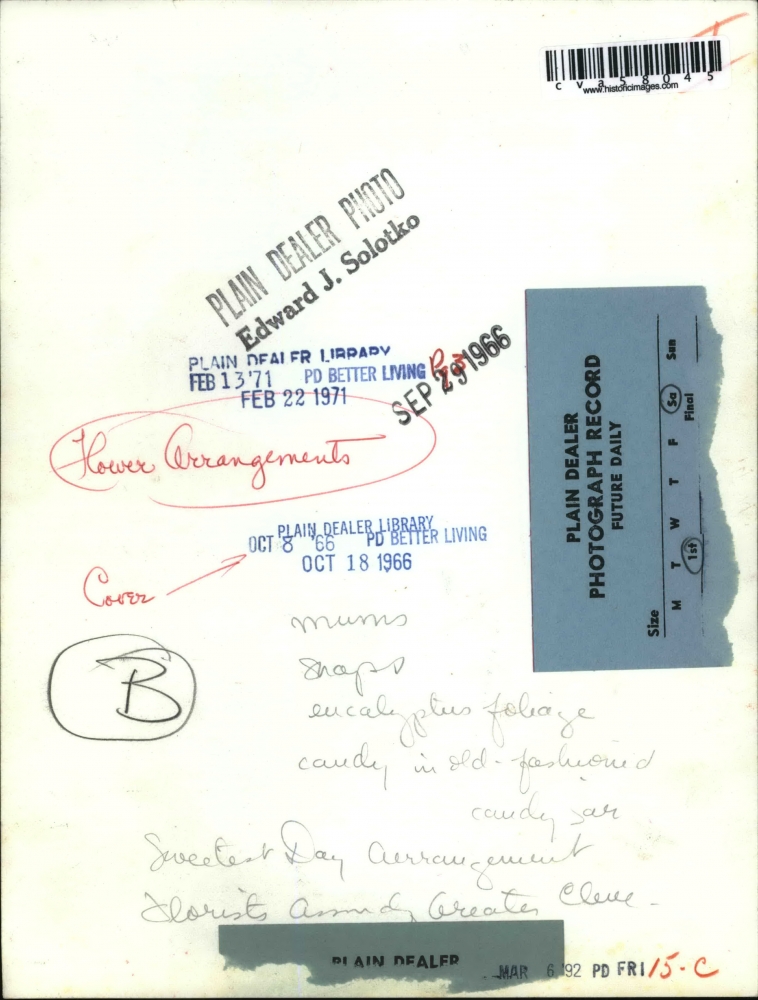 cva58045
www.historicimages.com
PLAIN DEALER PHOTO
Edward J. Solotko
PLAIN DEALER LIBRARY
FEB 13 '71 PD BETTER LIVING
FEB 22 1971
SEP 29 1966
Flower Arrangements
PLAIN DEALER LIBRARY
OCT 8 '66 PD BETTER LIVING
OCT 18 1966
Cover
B
mums
snaps
eucalyptus foliage
candy in old-fashioned
candy jar
Sweetest Day arrangement
Florists Assn of Greater Cleve-
PLAIN DEALER
PHOTOGRAPH RECORD
FUTURE DAILY
Size
M T W T F Sa Sun
1st Final
PLAIN DEALER
MAR 6 '92 PD FRI 15-C